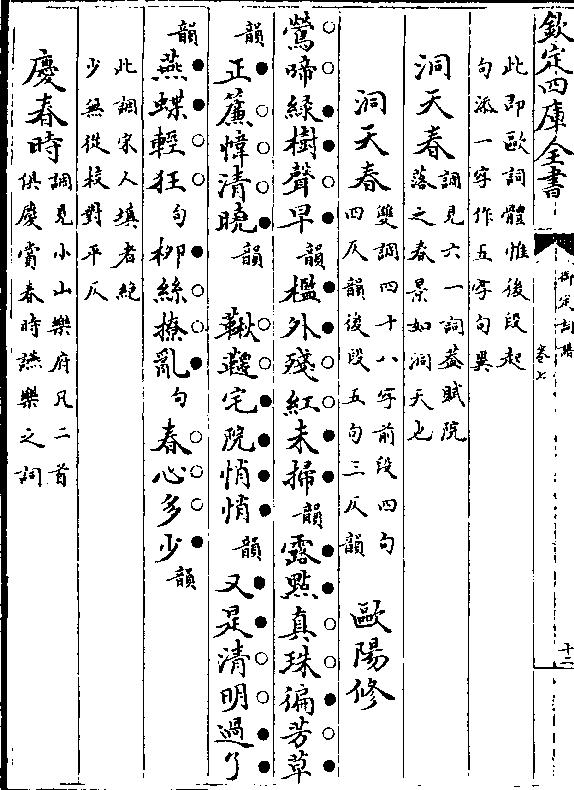 欽定四庫全書
御定詞譜
卷七
十二
此即歐詞體惟後段起
句添一字作五字句異
洞天春調見六一詞蓋賦院
落之春景如洞天也
洞天春雙調四十八字前段四句
四仄韻後段五句三仄韻
歐陽修
鶯啼綠樹聲早韻檻外殘紅未掃韻露點真珠徧芳草
韻正簾幃清曉韻 鞦韆宅院悄悄韻又是清明過了
韻燕蝶輕狂句柳絲撩亂句春心多少韻
此調宋人填者絕
少無從校對平仄
慶春時調見小山樂府凡二首
俱慶賞春時讌樂之詞